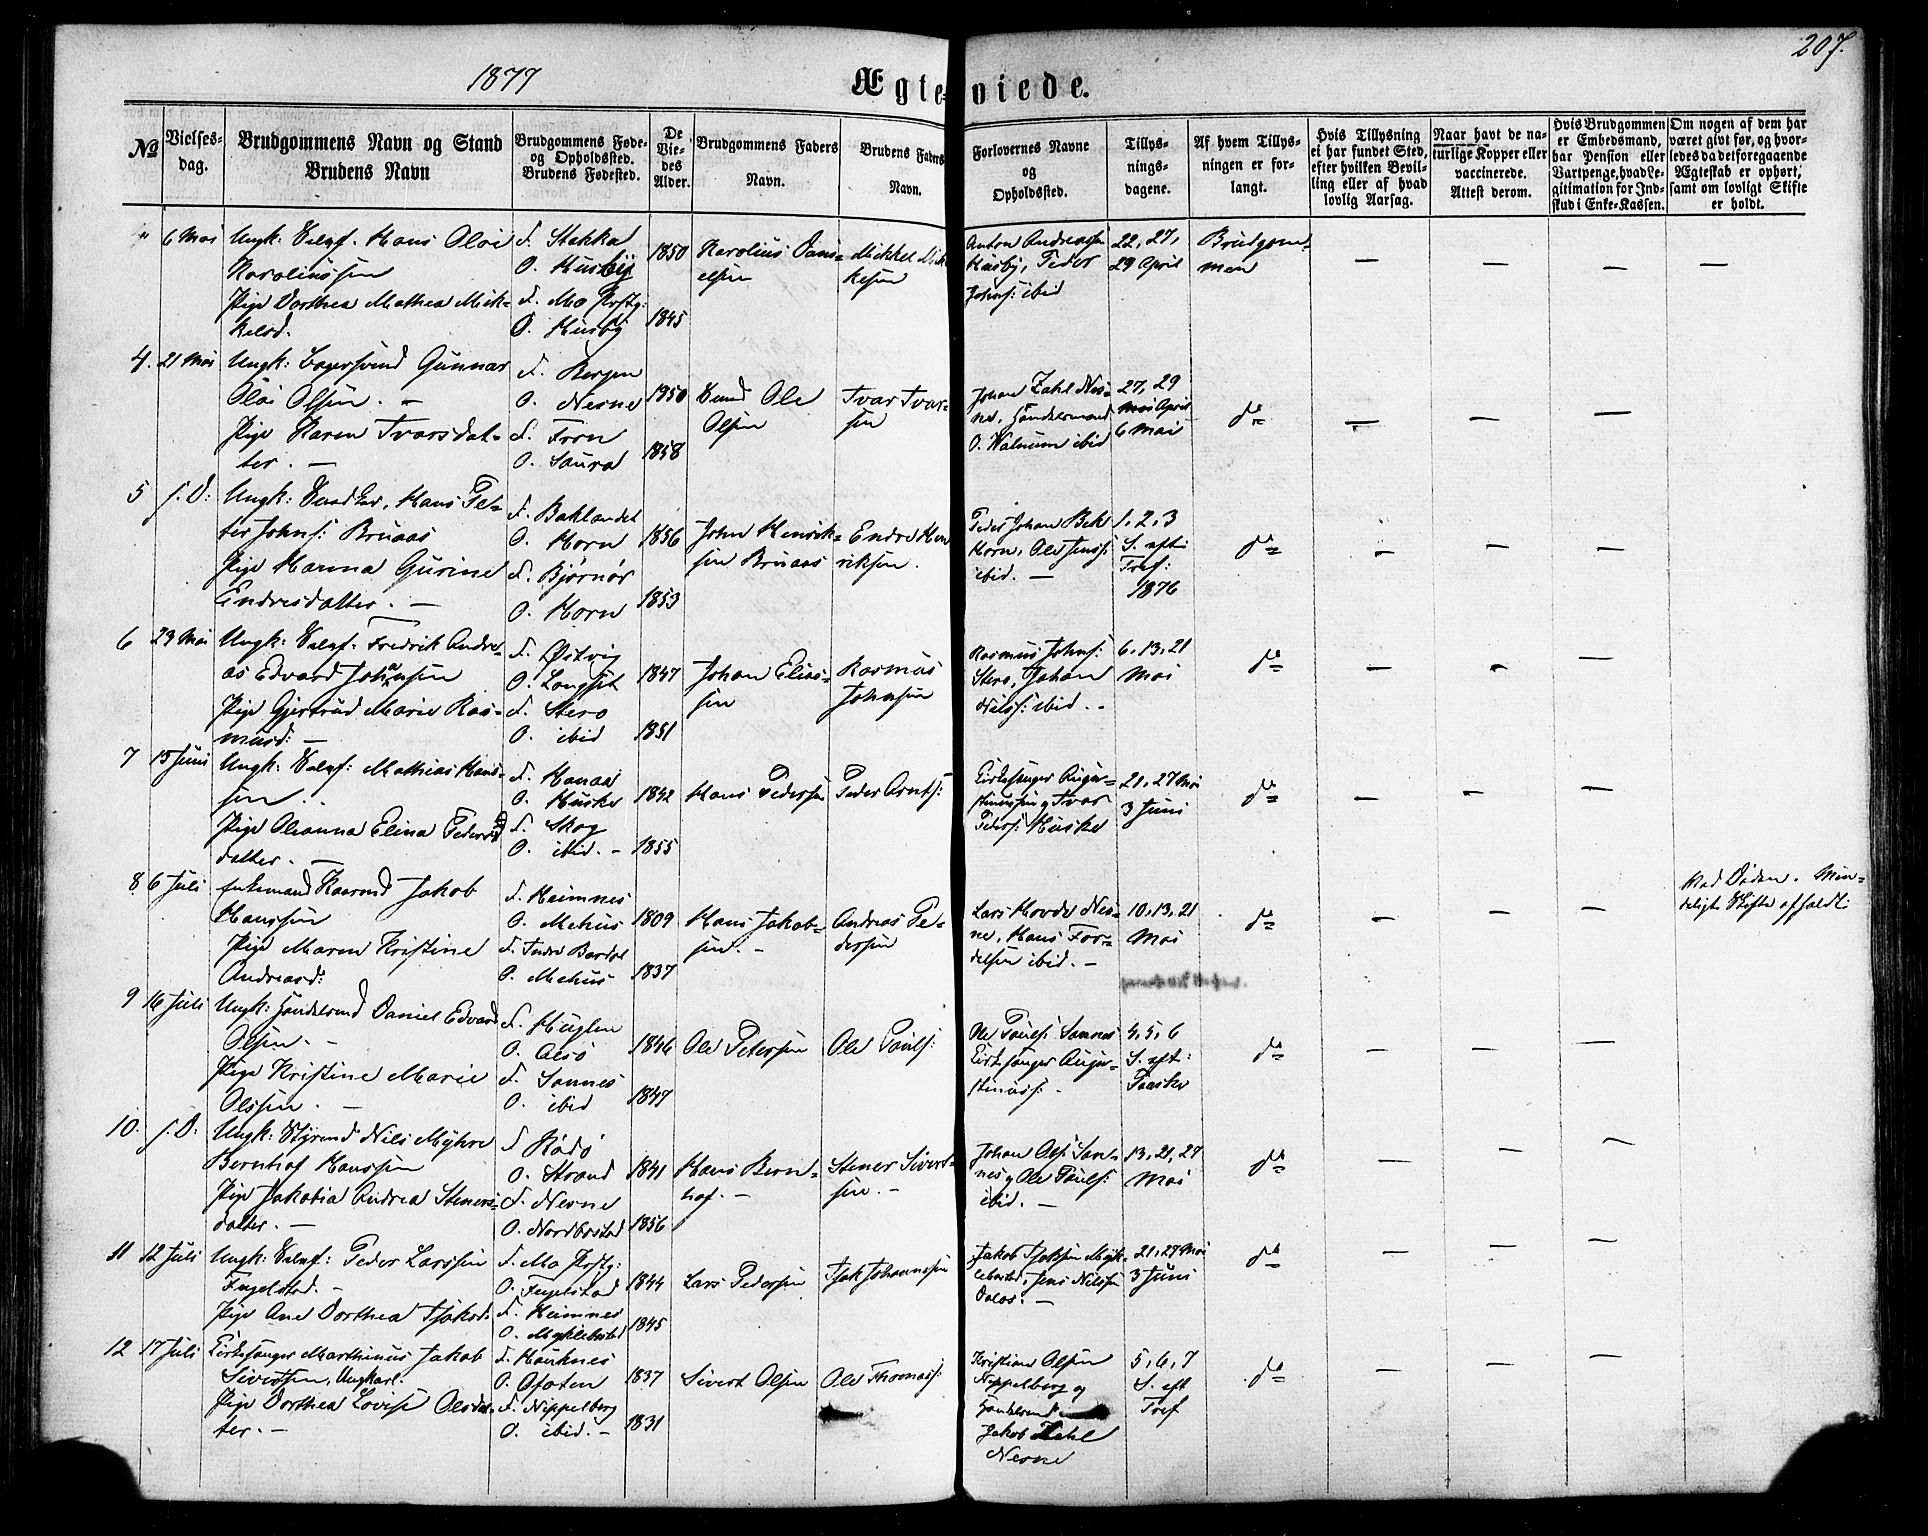 207.
1877
Ægte- viede.
No
Vielses-
dag.
Brudgommens Navn og Stand
Brudens Navn
Brudgommens Føde-
og Opholdssted.
Brudens Fødested.
De
Vie-
des
Alder.
Brudgommens Faders
Navn.
Brudens Faders
Navn.
Forlovernes Navne
og
Opholdssted.
Tillys-
nings-
dagene.
Af hvem Tillys-
ningen er for-
langt.
Hvis Tillysning
ei har fundet Sted,
efter hvilken Bevil-
ling eller af hvad
lovlig Aarsag.
Naar havt de na-
turlige Kopper eller
vaccinerede.
Attest derom.
Hvis Brudgommen
er Embedsmand,
har Pension eller
Vartpenge, hvad Le-
gitimation for Ind-
skud i Enke-Kassen.
Om nogen af dem har
været givt før, og hvor-
ledes da det foregaaende
Ægteskab er ophørt,
samt om lovligt Skifte
er holdt.
" 6 Mai Ungk: Hans Oløi
Karolinssen
Pige Dorthea Mathea Mik-
kelsd.
F. Stokka
O. Husby
F. Mo Prstg:
O. Husby
1850
1845
Karolius Dani-
elsen
Mikkel Mik
kelsen
Anton Andreassen
Husby, Peder
Johns: ibid
22, 27,
29 April
Brudgom-
men
4. 21 Mai Ungk: Gunnar
Oløi Olsen. —
Pige Karen Ivarsdat-
ter. —
F. Bergen
O. Nesne
F. Forn
O. Saura
1950
1858
Ole
Olsen
Ivar Ivar-
sen
Johan Zahl Nes-
ne, Handelsmand
O. Walnum ibid
27, 29
April
6 Mai
do
5 s. D: Ungk: Hans Pe-
ter Johns: Bruaas
Pige Hanna Gurine
Endresdatter. —
F. Baklandet
O. Horn
F. Bjørnør
O. Horn
1856
1853
John Henrik-
sen Bruaas
Endre Hen
riksen.
Peder Johan Bek
Horn, Ole Jenss:
ibid. —
1, 2, 3
S. eft:
Tref:
1876
do
6 23 Mai Ungk: Fredrik Andre-
as Edvard Johansen
Pige Gjertrud Marie Ras-
musd: —
F. Østvig
O. Langset
F. Stero
O. ibid
1847
1851
Johan Elias-
sen
Rasmus
Johnsen
Rasmus Johns:
Stero, Johan
Nilss: ibid. -
6, 13, 21
Mai
do
7 15 Juni Ungk: Mathias Hans-
sen. -
Pige Oleanna Elina Peders
datter. —
F. Hanaas
O. Huske
F. Skog
O. ibid. -
1842
1855
Hans Pedersen
Peder Arnts:
Kirkesanger Augu-
stinussen og Ivar
Peders: Huske
21, 27 Mai
3 Juni
do
8 6 Juli Enkemand Jakob
Hanssen
Pige Maren Kristine
Andreasd:
F. Hemnes
O. Mehus
F. Indre Bardal
O. Mehus
1809
1837
Hans Jakob-
sen. -
Andreas Pe-
dersen
Lars Hovde Nes-
ne, Hans For-
delsen ibid. —
10, 13, 21
Mai
do
Ved Døden. Min-
deligt Skifte afholdt.
9 16 Juli Ungk: Daniel Edvard
Olsen. -
Pige Kristine Marie
Olssen. —
F. Huglen
O. Alsø
F. Sannes
O. ibid
1846
1847
Ole Petersen
Ole Pauls:
Ole Pauls: Sannes
Kirkesanger Augu-
stinuss: -
4, 5, 6
S. eft:
Paaske
do
10. s. D: Ungk: Nils Myhre
Bernhof Hanssen
Pige Jakobia Andrea Steners-
datter. —
F Rødø
O. Strand
F. Nesne
O. Nordbostad
1841
1856
Hans Bern-
hof. -
Stener Sivert-
sen. -
Johan Ols: San-
nes og Ole Pauls:
ibid. —
13, 21, 27
Mai
do
11 12 Juli Ungk: Peder Larssen
Fugelstad. -
Pige Ane Dorthea Isaksd:
F. Mo Prstg:
O. Fugelstad
F. Hemnes
O. Myklebostad
1844
1845
Lars Pedersen
Isak Johannssen
Jakob Isaksen Myk-
lebostad, Jens Nilssen
Dalos: —
21, 27 Mai
3 Juni
do
12 17 Juli Kirkesanger Marthinus Jakob
Sivertsen, Ungkarl.
Pige Dorthea Lovise Olsdat-
ter. -
F. Hauknes
O. Ofoten
F. Nippelberg
O. ibid. -
1837
1831
Sivert Olsen
Ole Thomass:
Kristian Olsen
Nippelberg og
Jakob Zahl
Nesne
5, 6, 7
S. eft
Tref
do